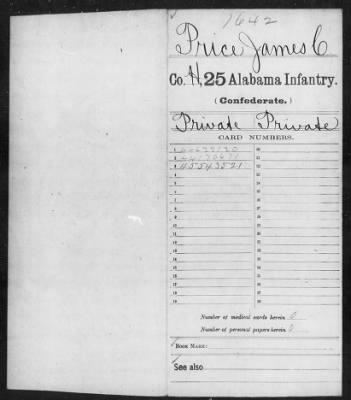 1642
Price, James C
Co. H, 25 Alabama Infantry.
(Confederate.)
Private Private
CARD NUMBERS.
1 20
2 21
3 45543521 22
4 23
5 24
6 25
7 26
8 27
9 28
10 29
11 30
12 31
13 32
14 33
15 34
16 35
17 36
18 37
19 38
Number of medical cards herein 0
Number of personal papers herein 0
BOOK MARK:
See also